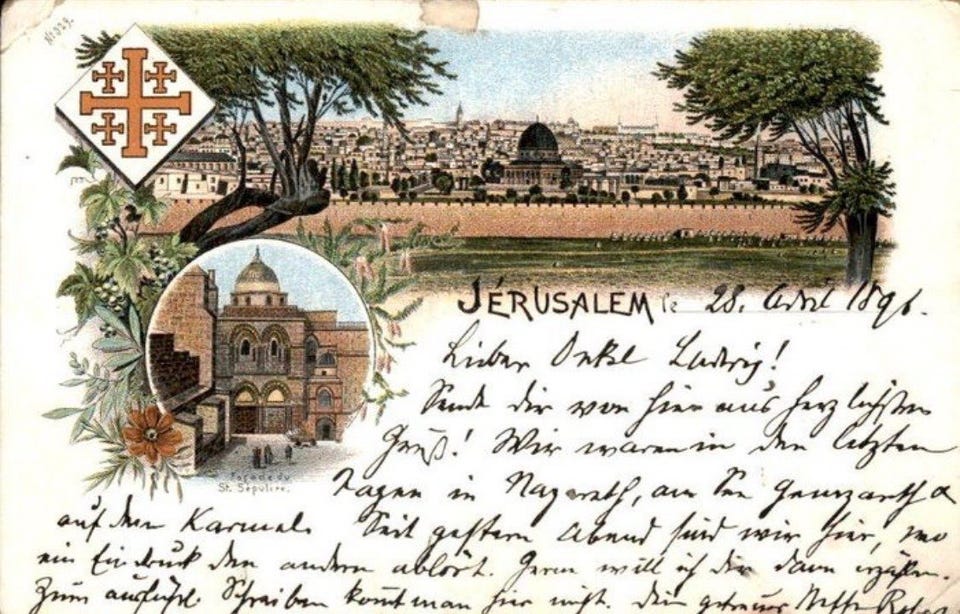 No 329.
JÉRUSALEM le 28. April 1896.
Lieber Onkel Ludwig!
Sende dir von hier aus herzlichsten
Gruß! Wir waren in den letzten
Façade du
St. Sépulcre.
Tagen in Nazareth, am See Genezareth &
auf dem Karmel. Seit gestern Abend sind wir hier, wo
ein Eindruck den andern ablöst. Gerne will ich dir dann erzählen.
Zum ausführl. Schreiben kommt man hier nicht. Dein getreuer Neffe